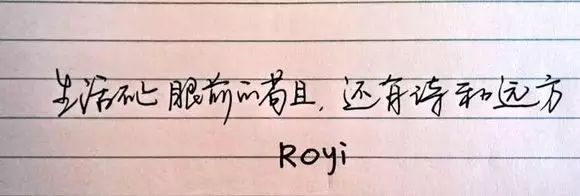 生活不止眼前的苟且,还有诗和远方
Royi